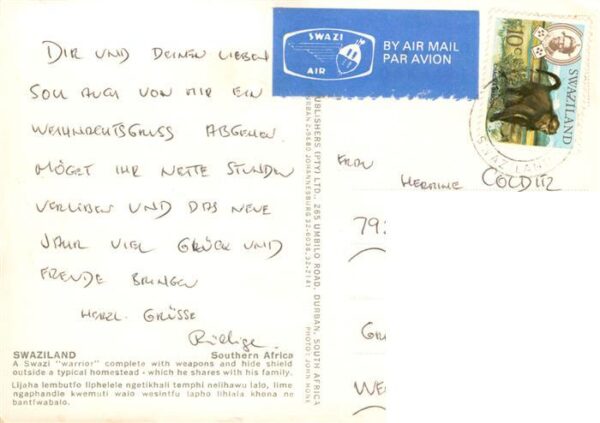 DIR UND DEINEN LIEBEN
SOLL AUCH VON MIR EIN
WEIHNACHTSGRUSS ABGEHEN.
MÖGET IHR NETTE STUNDEN
VERLEBEN UND DAS NEUE
JAHR VIEL GLÜCK UND
FREUDE BRINGEN
HERZL. GRÜSSE
SWAZILAND Southern Africa
A Swazi "warrior" complete with weapons and hide shield
outside a typical homestead - which he shares with his family.
Lijaha lembutfo liphelele ngetikhali temphi nelihawu lalo, lime
ngaphandle kwemuti walo wesintfu lapho lihlala khona ne
bantfwabalo.
PUBLISHERS (PTY) LTD., 265 UMBILO ROAD, DURBAN, SOUTH AFRICA
DURBAN 2-9680 JOHANNESBURG 32-6036, 32-2141
PHOTO: JOHN HONE
SWAZI
AIR
BY AIR MAIL
PAR AVION
10c
SWAZILAND
FRAU
HERMINE COLDITZ
79:
GR
WE